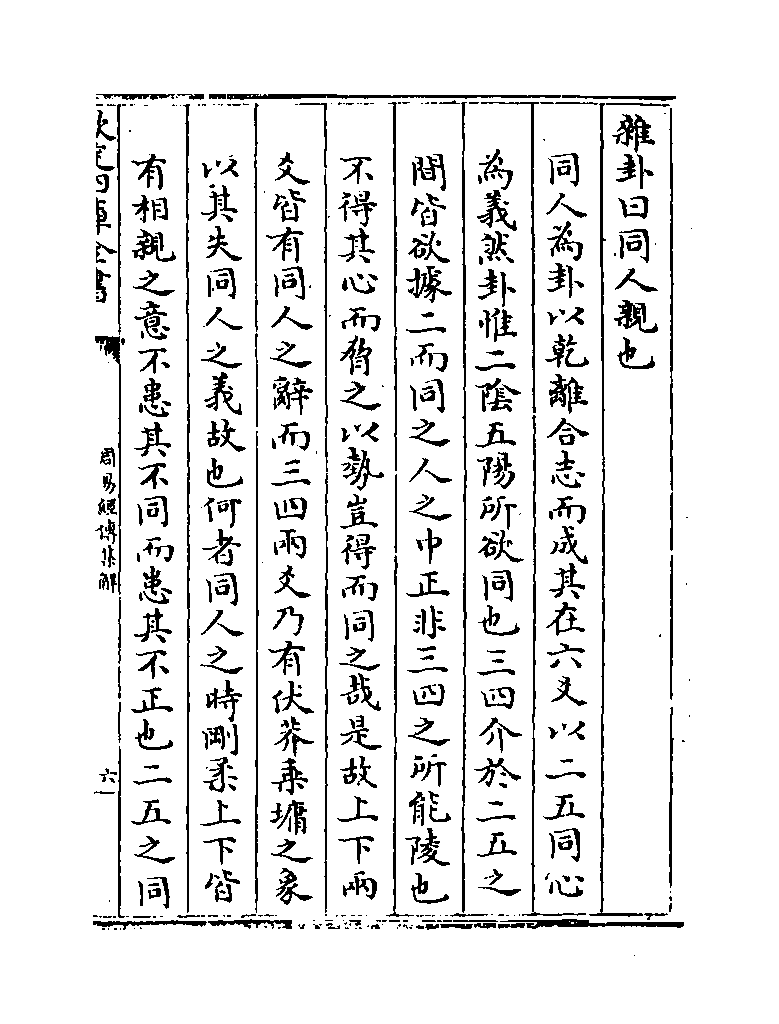 雜卦曰同人親也
同人為卦以乾離合志而成其在六爻以二五同心
為義然卦惟二陰五陽所欲同也三四介於二五之
間皆欲據二而同之人之中正非三四之所能陵也
不得其心而脅之以勢豈得而同之哉是故上下兩
爻皆有同人之辭而三四兩爻乃有伏莽乗墉之象
以其失同人之義故也何者同人之時剛柔上下皆
有相親之意不患其不同而患其不正也二五之同
欽定四庫全書
周易經傳集解
六